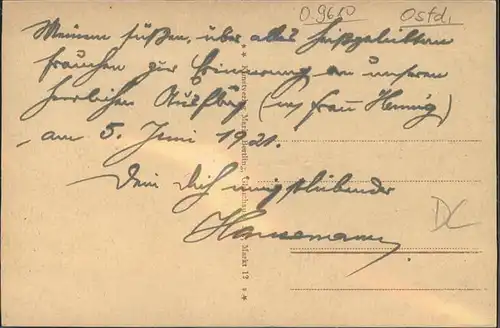 O.9610 Ostd.
Meinem süßen, über alles heißgeliebten
Frauchen zur Erinnerung an unseren
herrlichen Ausflug (m/ Frau Hennig)
am 5. Juni 1921.
Dein Dich innigstliebender
Hannemann.
DC
** Kunstverlag Markt 13 *